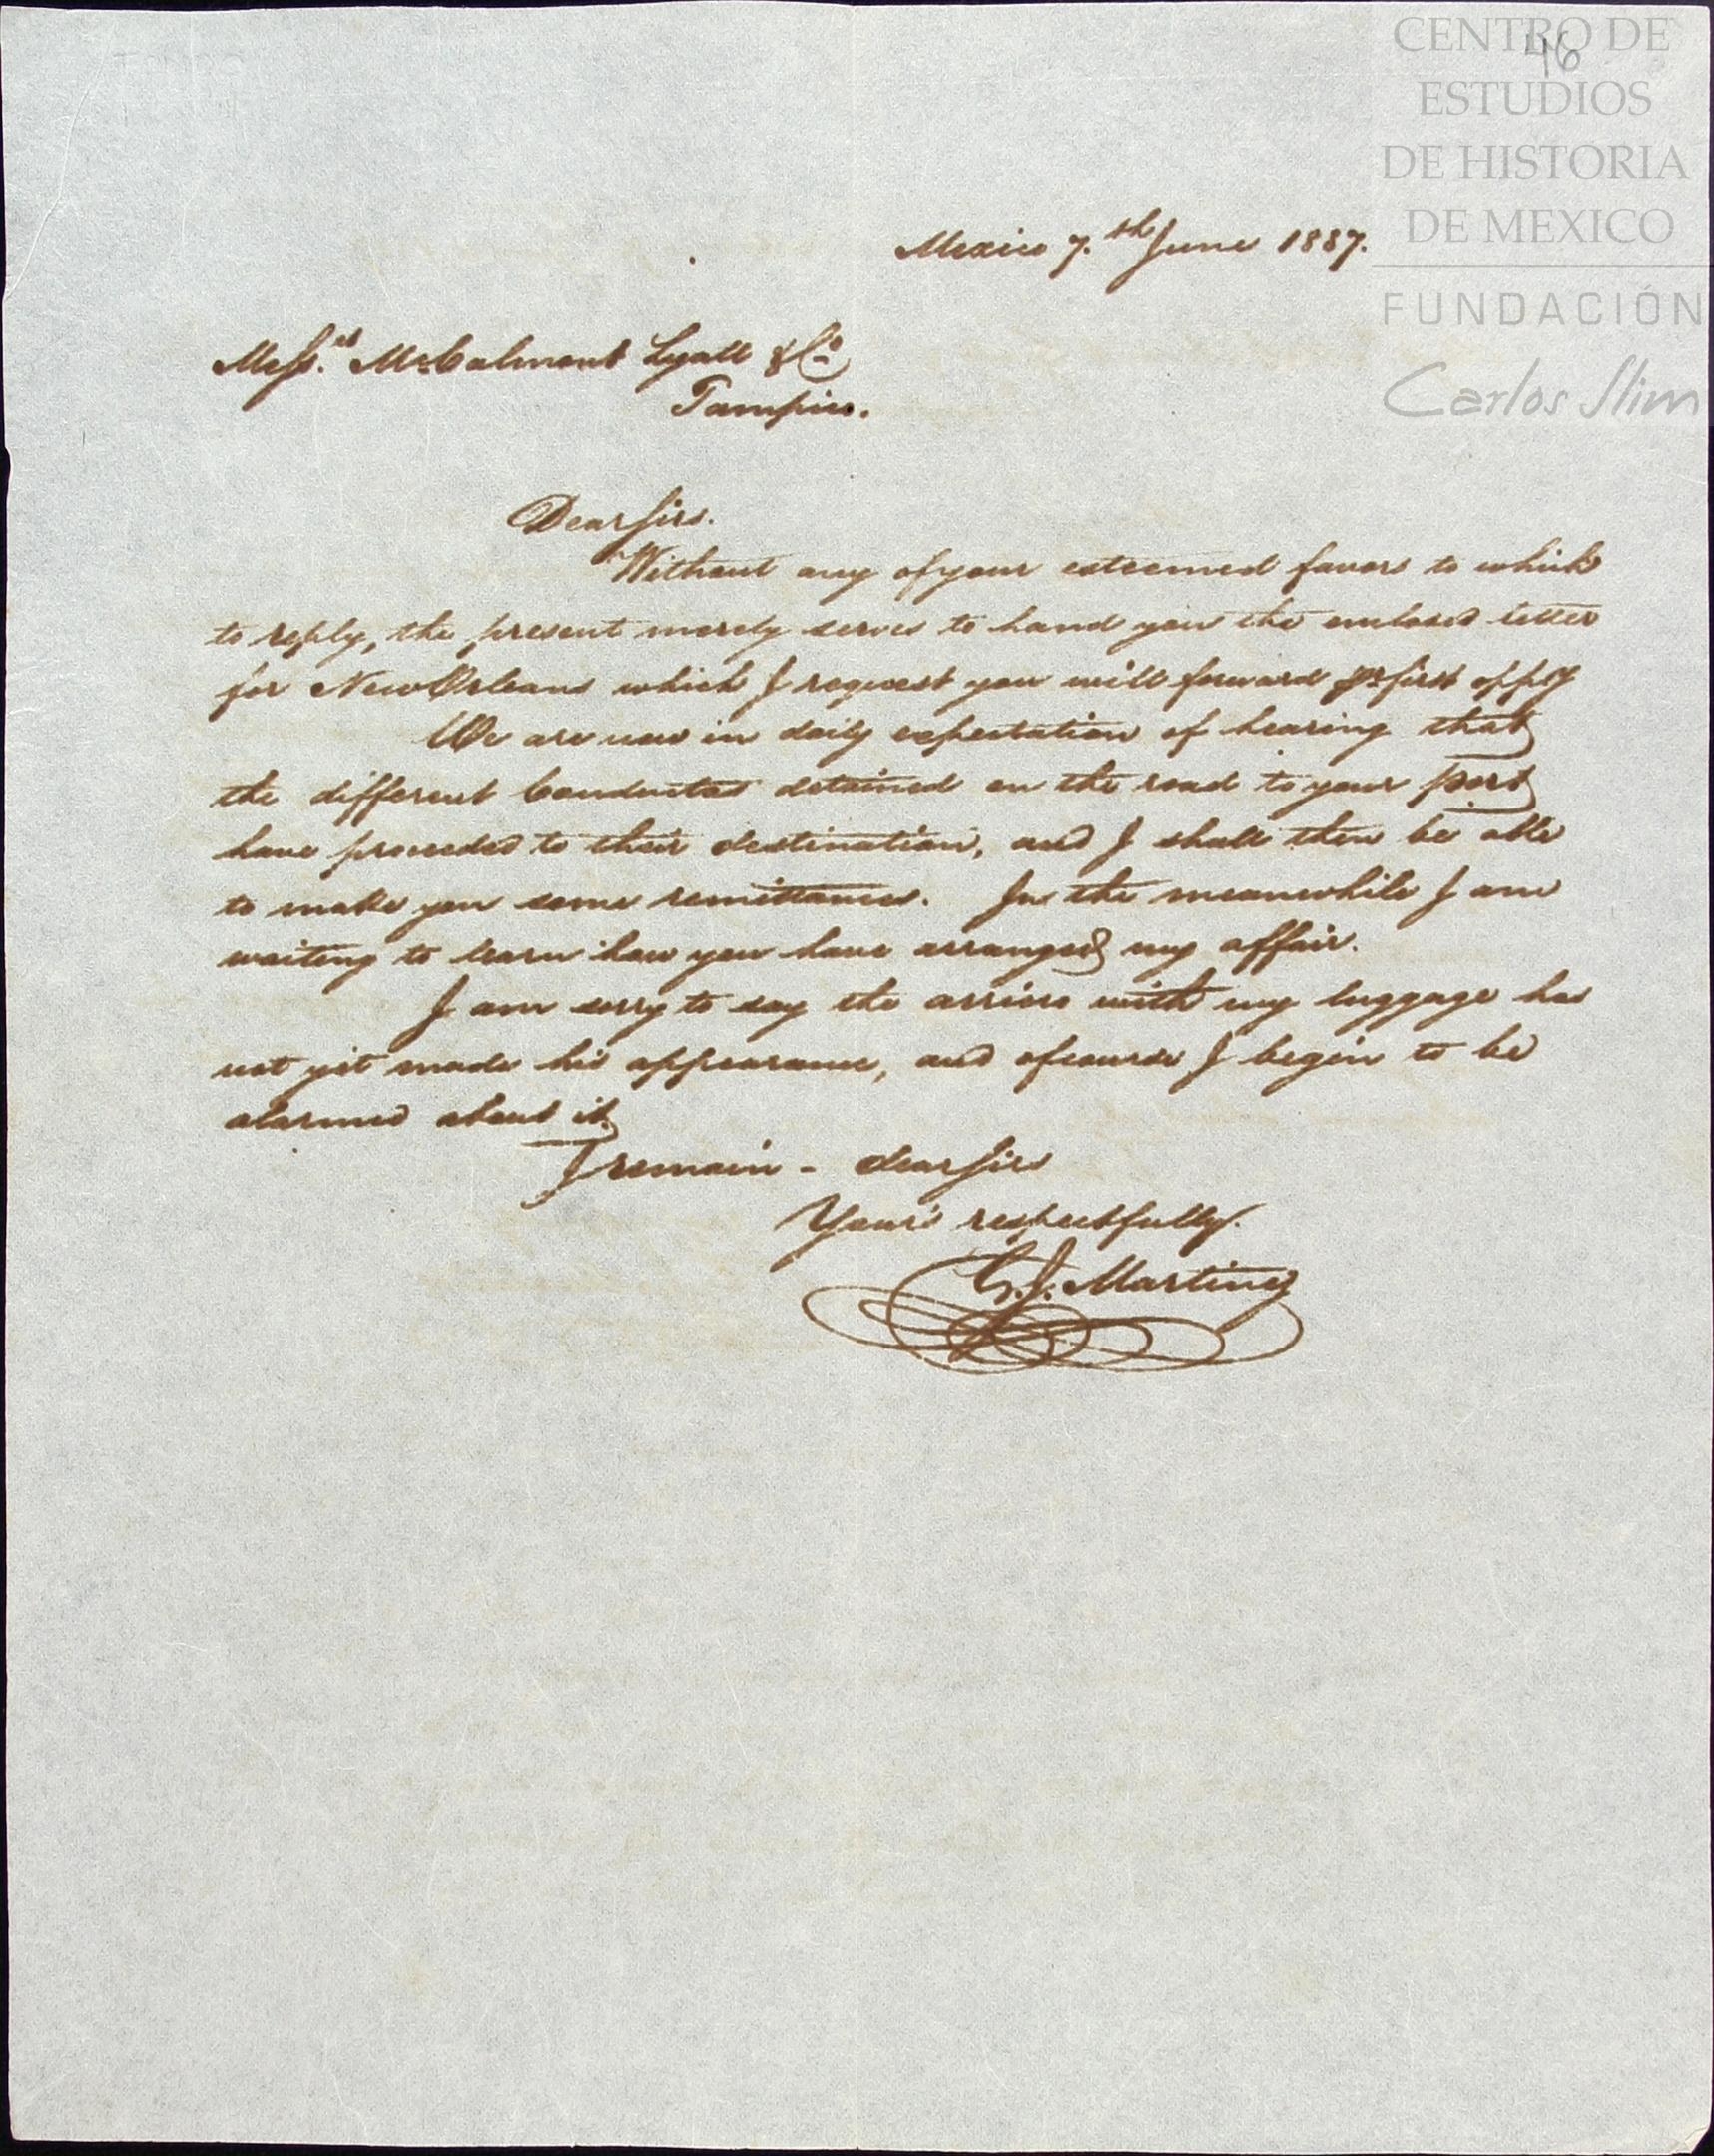 CENTRO DE
46
ESTUDIOS
DE HISTORIA
DE MEXICO
FUNDACIÓN
Carlos Slim
Mexico 7.th June 1837.
Mess.rs McCalmont Lyall & Co
Tampico.
Dear Sirs.
Without any of your esteemed favors to which
to reply, the present merely serves to hand you the enclosed letter
for New Orleans which I request you will forward pr first oppty
We are now in daily expectation of hearing that
the different Conductas detained on the road to your port
have proceeded to their destination, and I shall then be able
to make you some remittances. In the meanwhile I am
waiting to learn how you have arranged my affair.
I am sorry to say the arriero with my luggage has
not yet made his appearance, and of course I begin to be
alarmed about it.
I remain - dear Sirs
Your's respectfully.
G. J. Martinez